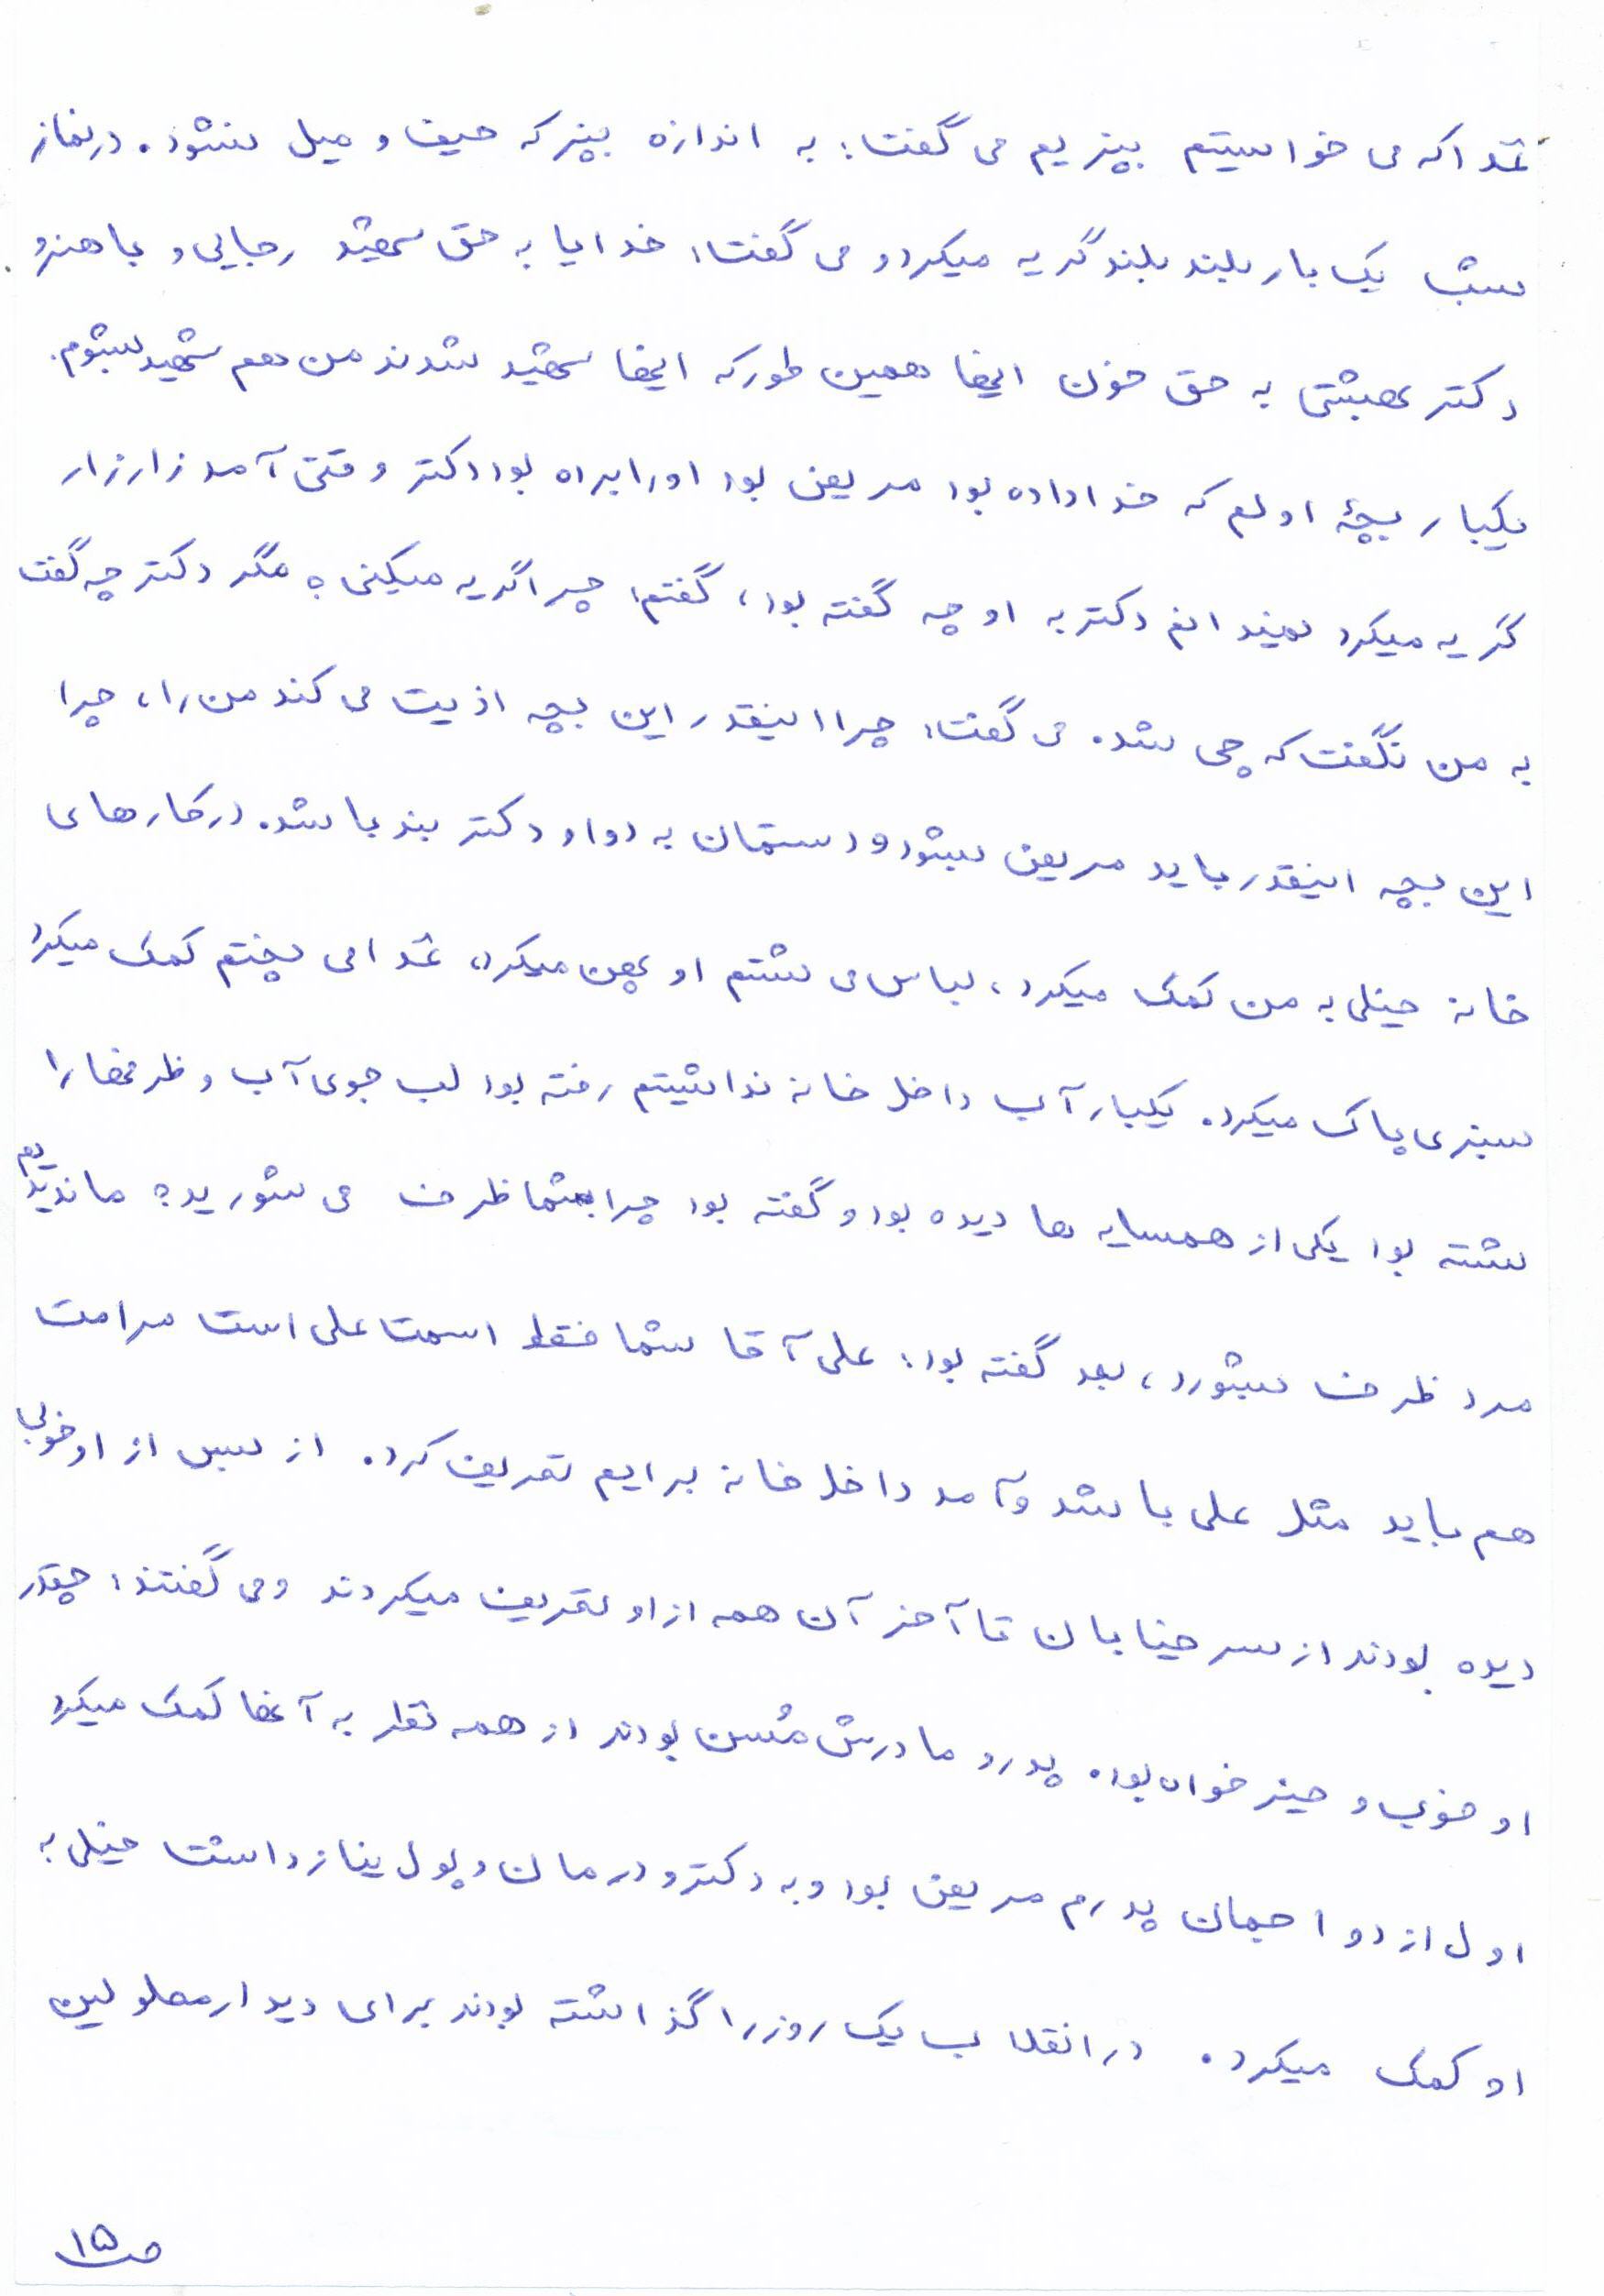 غذا که می خواستیم بپزیم می گفت: به اندازه بپز که حیف و میل نشود. در نماز
شب یک بار بلند بلند گریه میکرد و می گفت: خدایا به حق شهید رجایی و باهنر و
دکتر بهشتی به حق خون اینها همین طور که اینها شهید شدند من هم شهید بشوم.
یکبار بچهٔ اولم که خدا داده بود مریض بود او را برده بود دکتر وقتی آمد زار زار
گریه میکرد نمیدانم دکتر به او چه گفته بود، گفتم: چرا گریه میکنی؟ مگر دکتر چه گفت
به من نگفت که چی شد. می گفت: چرا اینقدر این بچه اذیت می کند من را، چرا
این بچه اینقدر باید مریض بشود و دستمان به دوا و دکتر بند باشد. در کارهای
خانه خیلی به من کمک میکرد، لباس می شستم او پهن میکرد، غذا می پختم کمک میکرد
سبزی پاک میکرد. یکبار آب داخل خانه نداشتیم رفته بود لب جوی آب و ظرفها را
شسته بود یکی از همسایه ها دیده بود و گفته بود چرا شما ظرف می شورید؟ ما ندیدیم
مرد ظرف بشورد، بعد گفته بود: علی آقا شما فقط اسمت علی است مرامت
هم باید مثل علی باشد و آمد داخل خانه برایم تعریف کرد. از بس از او خوبی
دیده بودند از سر خیابان تا آخر آن همه از او تعریف میکردند و می گفتند: چقدر
او خوب و خیر خواه بود. پدر و مادرش مُسن بودند از همه نظر به آنها کمک میکرد
اول ازدواجمان پدرم مریض بود و به دکتر و درمان و پول نیاز داشت خیلی به
او کمک میکرد. در انقلاب یک روز را گذاشته بودند برای دیدار معلولین
ص ۱۵